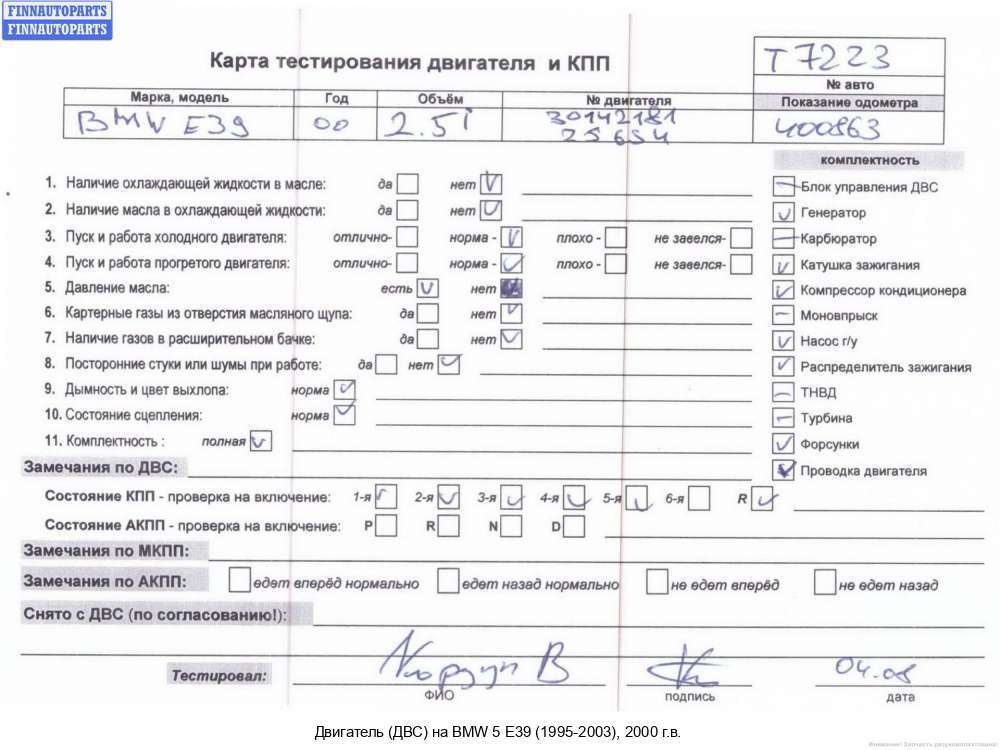 FINNAUTOPARTS
FINNAUTOPARTS
Карта тестирования двигателя и КПП
T7223
№ авто
Марка, модель Год Объём № двигателя Показание одометра
BMW E39 00 2.5i 30142181 400863
25 6S4
комплектность
1. Наличие охлаждающей жидкости в масле: да нет Блок управления ДВС
2. Наличие масла в охлаждающей жидкости: да нет Генератор
3. Пуск и работа холодного двигателя: отлично- норма - плохо - не завелся- Карбюратор
4. Пуск и работа прогретого двигателя: отлично- норма - плохо - не завелся- Катушка зажигания
5. Давление масла: есть нет Компрессор кондиционера
6. Картерные газы из отверстия масляного щупа: да нет Моновпрыск
7. Наличие газов в расширительном бачке: да нет Насос г/у
8. Посторонние стуки или шумы при работе: да нет Распределитель зажигания
9. Дымность и цвет выхлопа: норма ТНВД
10. Состояние сцепления: норма Турбина
11. Комплектность : полная Форсунки
Замечания по ДВС: Проводка двигателя
Состояние КПП - проверка на включение: 1-я 2-я 3-я 4-я 5-я 6-я R
Состояние АКПП - проверка на включение: P R N D
Замечания по МКПП:
Замечания по АКПП: едет вперёд нормально едет назад нормально не едет вперёд не едет назад
Снято с ДВС (по согласованию!):
Тестировал: В 04.08
ФИО подпись дата
Двигатель (ДВС) на BMW 5 E39 (1995-2003), 2000 г.в.